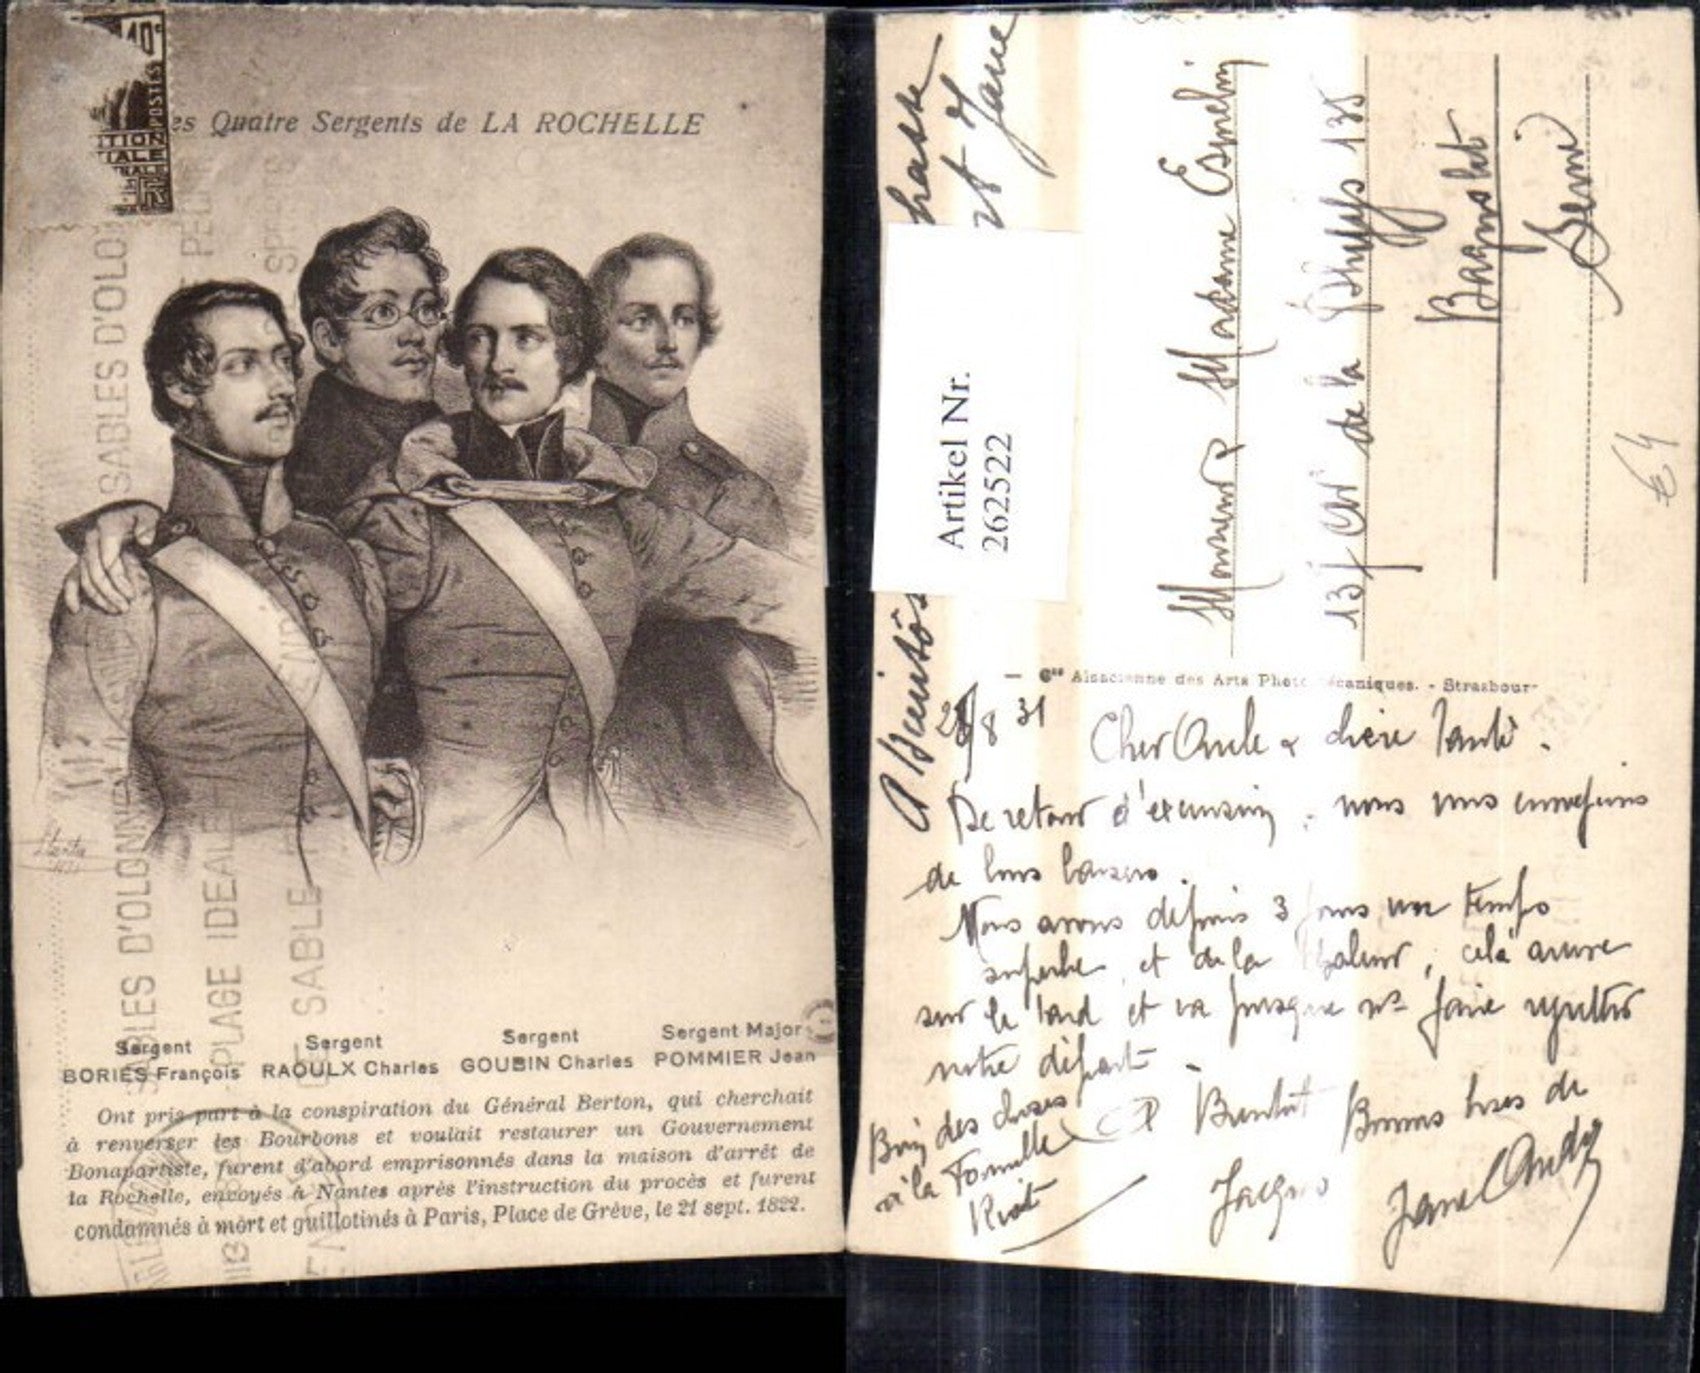 40c
POSTES
es Quatre Sergents de LA ROCHELLE
SABLES D'OLO
SABLES D'OLONNE
PLAGE IDEALE
SABLE
Sergent
BORIES François
Sergent
RAOULX Charles
Sergent
GOUBIN Charles
Sergent Major
POMMIER Jean
Ont pris part à la conspiration du Général Berton, qui cherchait
à renverser les Bourbons et voulait restaurer un Gouvernement
Bonapartiste, furent d'abord emprisonnés dans la maison d'arrêt de
la Rochelle, envoyés à Nantes après l'instruction du procès et furent
condamnés à mort et guillotinés à Paris, Place de Grève, le 21 sept. 1822.
Artikel Nr.
262522
Monsieur & Madame
135 de la 135
Bagnolet
Seine
€ 4
- Cie Alsacienne des Arts Photomécaniques. - Strasbour-
A Bientôt
et Jane
28/8 31
Cher Oncle & chère Tante.
De retour d'excursion, nous vous envoyons
de bons baisers.
Nous avons depuis 3 jours un temps
superbe et de la chaleur, celà arrive
sur le tard et va presque ns faire regretter
notre départ.
Bien des choses
à la Famille
A Bientôt Bonnes bises de
Jacques
Jane André